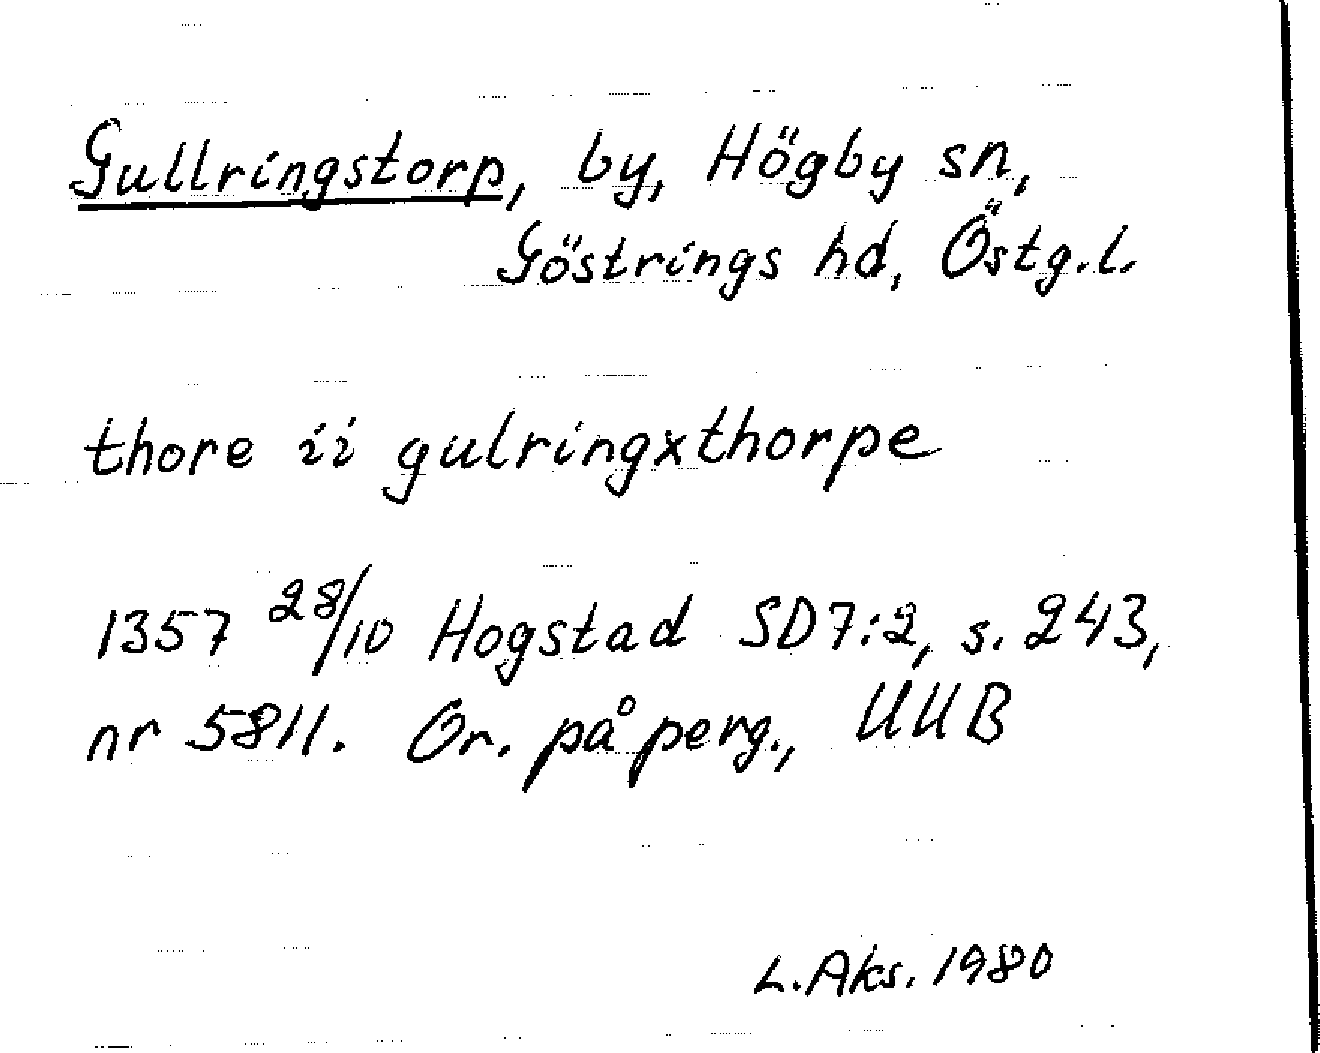 Gullringstorp, by, Högby sn,
Göstrings hd, Östg.l.
thore ii gulringxthorpe
1357 28/10 Hogstad SD7:2, s. 243,
nr 5811. Or. på perg., UUB
L. Aks. 1980